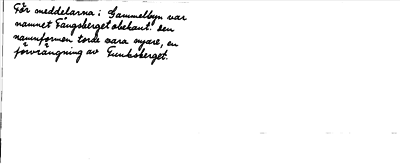 För meddelarna i Gammelbyn var
namnet Fångsberget obekant. den
namnformen torde vara nyare, en
förvrängning av Funksberget.